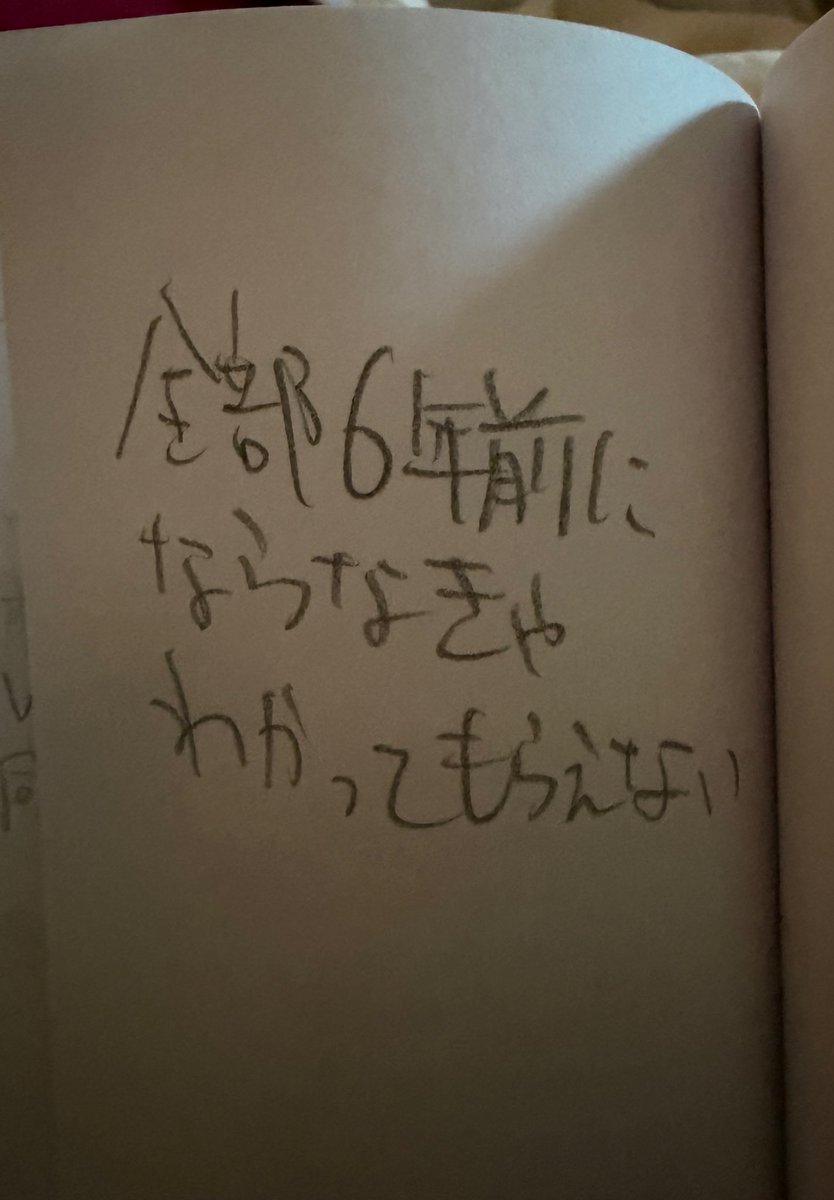 全部6年前に
ならなきゃ
わかってもらえない